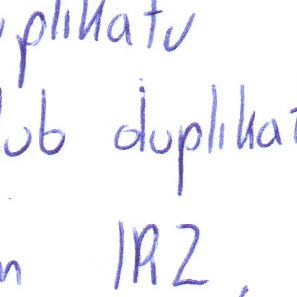 plikatu
lub duplikat
n IRZ,